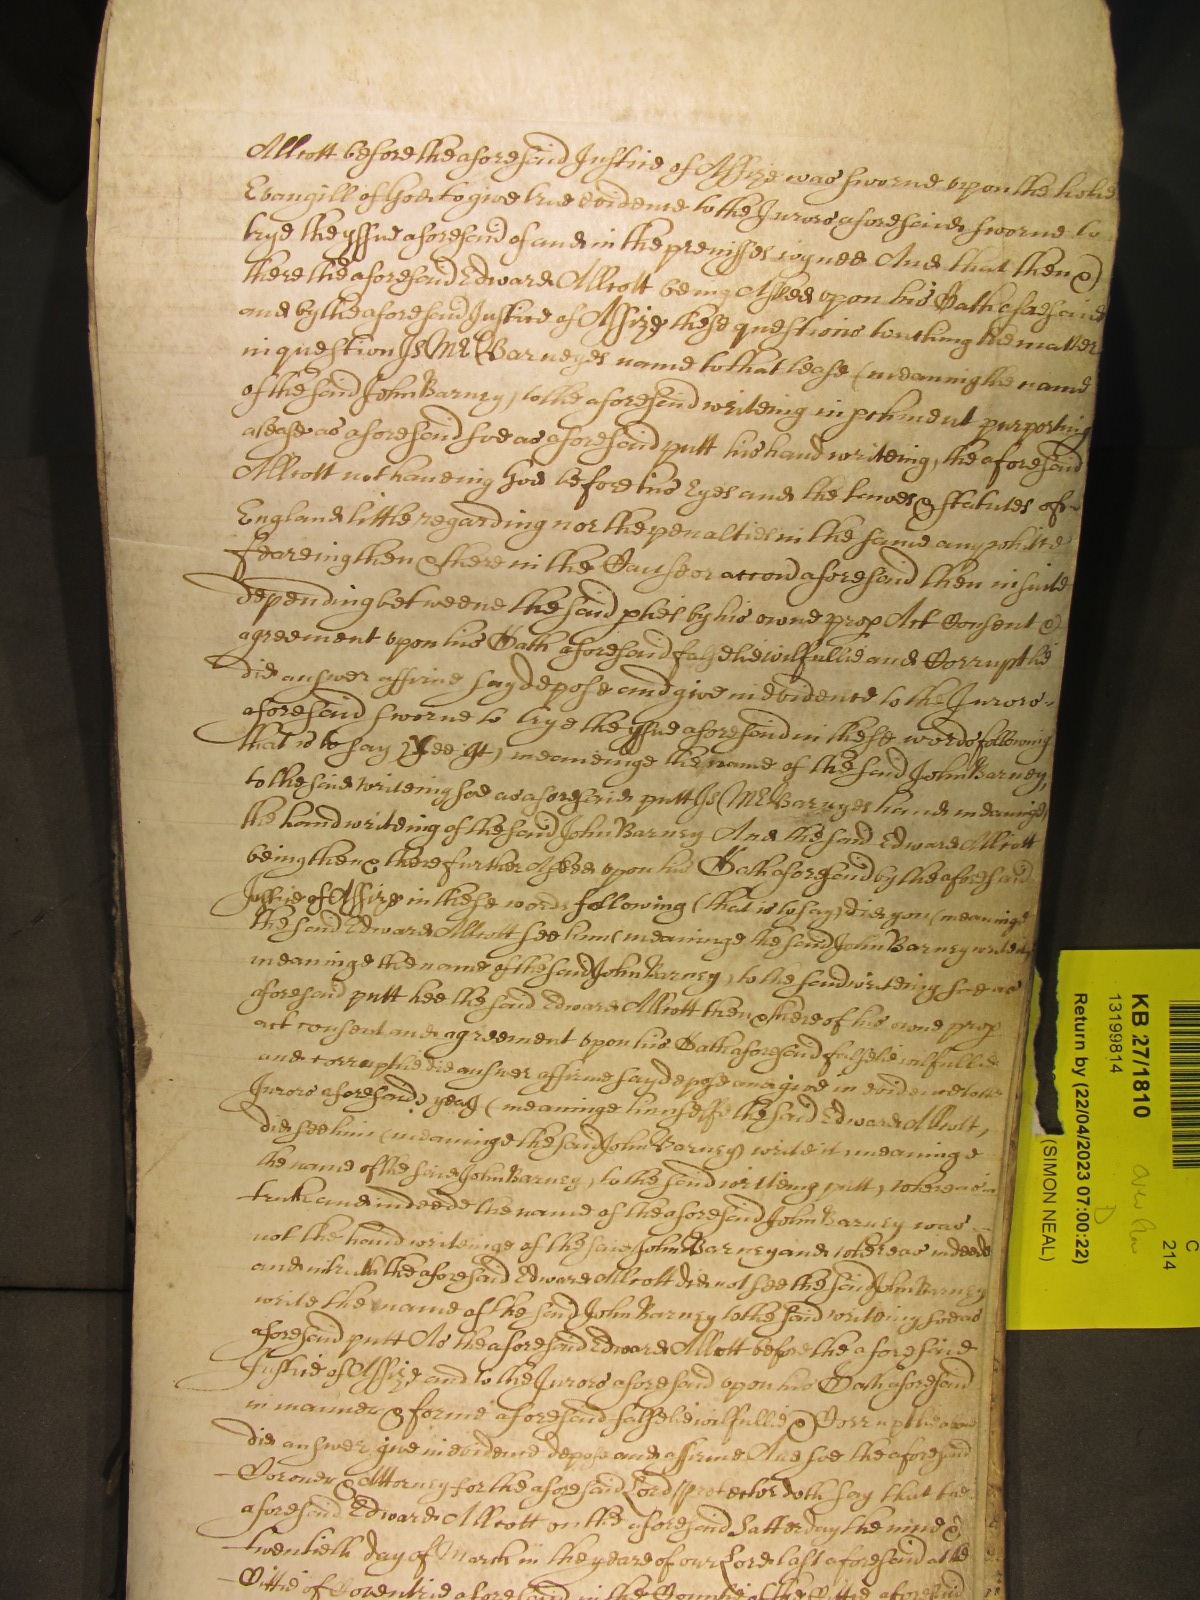 Allcott before the aforesaid Justice of Assize was sworne upon the holie
Evangill of God to give true evidence to the Jurors aforesaid sworne to
trye the yssue aforesaid of and in the premisses ioyned And that then &
there the aforesaid Edward Allcott being Asked upon his Oath aforesaid
and by the aforesaid Justice of Assize these questions touching the matter
in question Is Mr Barneyes name to that lease (meaning the name
of the said John Barney) to the aforesaid writeing in pchment purporting
a lease as aforesaid soe as aforesaid putt his hand writeing, the aforesaid
Allcott not haveing God before his Eyes and the Lawes & Statutes of
England little regarding nor the penalties in the same any white
feareing then & there in the Cause or accon aforesaid then in suite
depending betweene the said pties by his owne prop Act Consent &
agreement upon his Oath aforesaid falselie wilfullie and Corruptlie
did answer affirme say depose and give in evidence to the Jurors
aforesaid sworne to trye the yssue aforesaid in these words following
that is to say Yee It, meaneinge the name of the said John Barney,
to the said writeing soe as aforesaid putt Is Mr Barnyes hand meaninge
the hand writeing of the said John Barney And the said Edward Allcott
being then & there further Asked upon his Oath aforesaid by the aforesaid
Justice of Assize in these words following (that is to say) did you (meaninge
the said Edward Allcott see him (meaninge the said John Barney write it
meaninge the name of the said John Barney) to the said writeing soe as
aforesaid putt hee the said Edward Allcott then & there of his owne prop
act consent and agreement upon his Oath aforesaid falselie wilfullie
and corruptlie did answer affirme say depose and give in evidence to the
Jurors aforesaid, yea I (meaninge himselfe the said Edward Allcott,
did see him (meaninge the said John Barney) write it meaninge
the name of the said John Barney) to the said writeing putt, whereas in
truth and indeede the name of the aforesaid John Barney was
not the hand writeinge of the said John Barney and whereas indeede
and in truth the aforesaid Edward Allcott did not see the said John Barney
write the name of the said John Barney to the said writeing soe as
aforesaid putt As the aforesaid Edward Allcott before the aforesaid
Justice of Assize and to the Jurors aforesaid upon his Oath aforesaid
in manner & forme aforesaid falselie wilfullie & Corruptlie
did answer, give in evidence depose and affirme And soe the aforesaid
Coroner & Attorney for the aforesaid Lord Protector doth say that the
aforesaid Edward Allcott on the aforesaid Satterday the nine &
twentieth day of March in the yeare of our Lord last aforesaid att the
Cittie of Coventrie aforesaid in the Countie of the Cittie aforesaid
KB 27/1810
13199814
Return by (22/04/2023 07:00:22)
(SIMON NEAL)
C
214